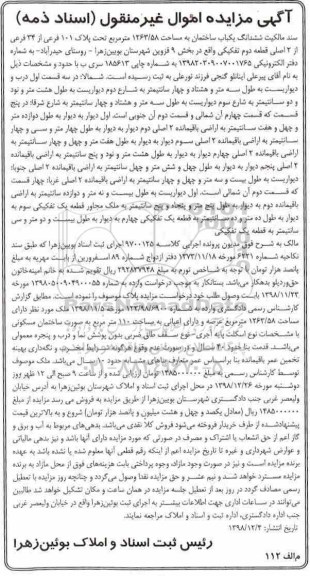 آگهی مزایده اموال غیرمنقول (اسناد ذمه)
سند مالکیت ششدانگ یکباب ساختمان به مساحت ۱۲۶۳/۵۸ مترمربع تحت پلاک ۱۰۱ فرعی از ۳۴ فرعی
از ۲ اصلی قطعه دوم تفکیکی واقع در بخش ۹ قزوین شهرستان بویین‌زهرا - روستای حیدرآباد- به شماره
دفتر الکترونیکی ۱۳۹۸۲۰۳۰۹۰۰۷۰۰۱۷۶۵ به شماره چاپی ۱۸۵۶۱۳ سری ب با حدود و مشخصات ذیل
به نام آقای پیرعلی اینانلو گنجی فرزند تورعلی به ثبت رسیده است. شمالا: در سه قسمت اول درب و
دیوار است به طول سه متر و هشتاد و چهار سانتیمتر به شارع دوم دیواریست به طول هشت متر و نود
و دو سانتیمتر به شارع سوم دیواریست به طول سه متر و هشتاد و چهار سانتیمتر به شارع شرقا: در پنج
قسمت که قسمت چهارم آن شمالی و قسمت دوم آن جنوبی است. اول دیوار به دیوار به طول دوازده متر
و چهل و هفت سانتیمتر به اراضی باقیمانده ۲ اصلی دوم دیوار به دیوار به طول چهار متر و سی و چهار
سانتیمتر به اراضی باقیمانده ۲ اصلی سوم دیوار به دیوار به طول هفت متر و چهل و چهار سانتیمتر به
اراضی باقیمانده ۲ اصلی چهارم دیوار به دیوار به طول هشت متر و نود و پنج سانتیمتر به اراضی باقیمانده
۲ اصلی پنجم دیوار به دیوار به طول چهل و شش متر و چهل سانتیمتر به اراضی باقیمانده ۲ اصلی جنوبا:
دیواریست به طول بیست و سه متر و چهل و چهار سانتیمتر به اراضی باقیمانده ۲ اصلی غربا: چهار قسمت
که قسمت دوم آن شمالی است. اول دیواریست به طول بیست و نه متر و دوازده سانتیمتر به اراضی
باقیمانده دوم به دیوار به طول پنج متر و پنجاه و پنج سانتیمتر به ملک مجاور قطعه یک تفکیکی سوم به
دیوار به طول ده متر و ده سانتیمتر به قطعه یک تفکیکی چهارم به دیوار به طول بیست و دو متر و سی
سانتیمتر به قطعه یک تفکیکی
مالک به شرح فوق مدیون پرونده اجرایی کلاسه ۹۷۰۰۱۲۵ اجرای ثبت اسناد بویین‌زهرا که طبق سند
نکاحیه شماره ۶۴۲۱ مورخه ۱۳۷۲/۱۱/۱۸ دفتر ازدواج شماره ۸۹ اسفرورین از بابت مهریه به مبلغ
پانصد هزار تومان با توجه به شاخص تورم به مبلغ ۲۹۲۸۳۷۹۴۸ ریال تقویم شده به خانم امینه‌خاتون
حق‌وردیلو بدهکار می‌باشد. بستانکار به موجب درخواست وارده به شماره ۱۳۹۸۰۵۰۰۹۰۴۹۰۰۰۵۵ مورخه
۱۳۹۸/۱۱/۲۳ بابت وصول طلب خود درخواست مزایده پلاک موصوف را نموده است. مطابق گزارش
کارشناس رسمی دادگستری وارده به شماره مورخه ۱۳۹۸/۱۰/۵ ملک مورد نظر دارای
۱۲۶۳/۵۸ مترمربع عرصه و دارای اعیانی به مساحت ۱۱۰ متر مربع به صورت ساختمان مسکونی
با مشخصات نوع اسکلت پایه آجری- نوع سقف طاق ضربی بدون پوشش نما و درب و پنجره معمولی
می‌باشد. قدمت بنا حدود ۳۰ سال
تخمین عمر باقیمانده بنا براساس عمر متعارف بناهای مشابه حدود ۲۰ سال می‌باشد. ملک موصوف
توسط کارشناس رسمی به مبلغ ۱۴۸۵۰۰۰۰۰۰ ریال ارزیابی شده و از ساعت ۹ صبح الی ۱۲ ظهر روز
دوشنبه مورخه ۱۳۹۸/۱۲/۲۶ در محل اجرای ثبت اسناد و املاک شهرستان بوئین‌زهرا به آدرس خیابان
ولیعصر غربی جنب دادگستری شهرستان بوئین‌زهرا از طریق مزایده به فروش می رسد مزایده از مبلغ
۱۴۸۵۰۰۰۰۰۰ ریال (معادل یکصد و چهل و هشت میلیون و پانصد هزار تومان) شروع و به بالاترین قیمت
پیشنهاد‌ده از طرف خریدار فروخته می‌شود فروش کلا نقدی می‌باشد. بدهی‌های مربوط به آب و برق و
گاز اعم از حق انشعاب یا اشتراک و مصرف در صورتی که مورد مزایده دارای آنها باشد و نیز بدهی مالیاتی
و عوارض شهرداری و غیره تا تاریخ مزایده اعم از اینکه رقم قطعی آنها معلوم شده یا نشده باشد به عهده
برنده مزایده است و نیز در صورت وجود مازاد وجوه پرداختی بابت هزینه‌های فوق از محل مازاد به برنده
مزایده مسترد خواهد شد و نیم عشر و حق مزایده نقدا وصول می‌گردد و چنانچه روز مزایده با تعطیل
رسمی مصادف گردد در روز بعد از تعطیل جلسه مزایده در همان ساعت و مکان تشکیل خواهد شد طالبین
می‌توانند در ساعات اداری جهت اطلاعات بیشتر به اجرای ثبت بوئین‌زهرا واقع در خیابان ولیعصر غربی
جنب اداره دادگستری، اداره ثبت و اسناد و املاک مراجعه نمایند.
تاریخ انتشار: ۱۳۹۸/۱۲/۴
رئیس ثبت اسناد و املاک بوئین‌زهرا
م‌الف ۱۱۲